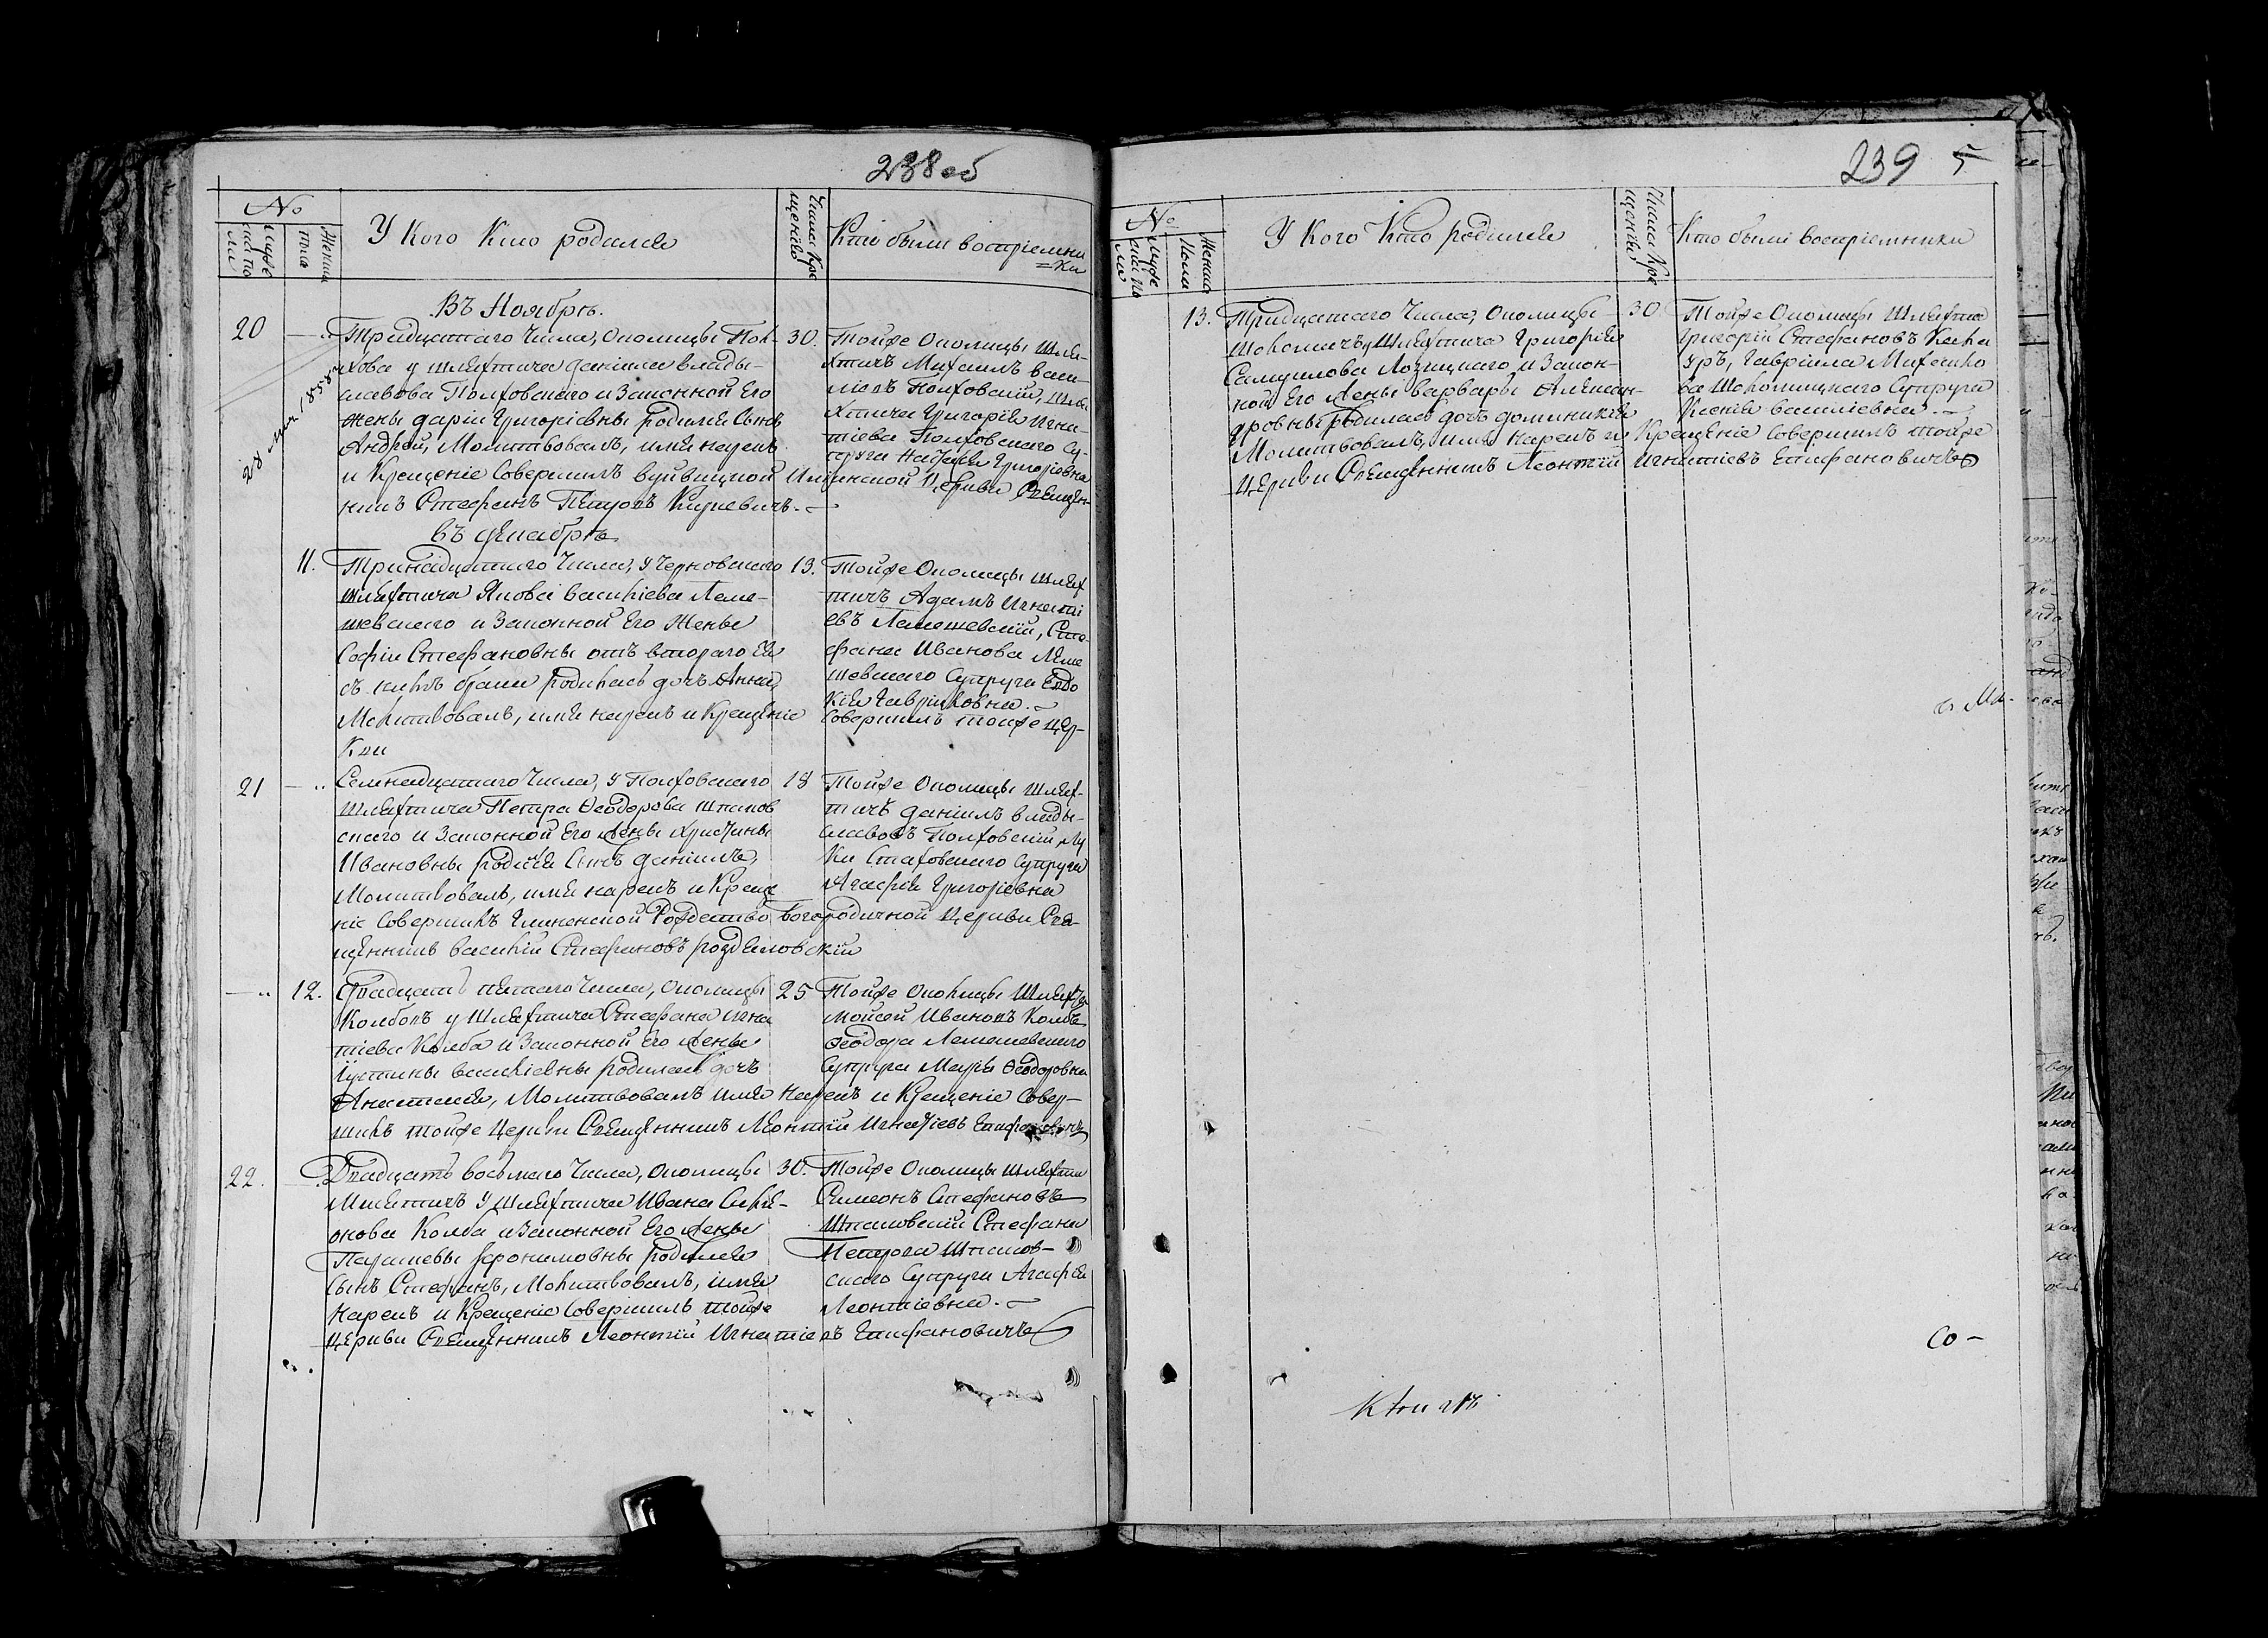 238 об
№
Мужеска пола
Женска пола
У Кого Кто родился
Числа Крещенія
Кто были воспріемни
=ки
Въ Ноябрѣ.
20
30.
Тридцатаго Числа, Околицы Пол-
хова у шляхтича Даніила влады-
славова Полховскаго и Законной Его
Жены Даріи Григоріевны родился Сынъ
Андрей, Молитвовалъ, имя нарекъ
и Крещеніе Совершилъ Церкви Священ-
никъ Стефанъ
Тойже Околицы Шля-
хтичъ Михаилъ васи-
Полховскій, Шля
хтича Григорія Игна-
тіева Полховскаго Су-
пруга Григоріевна
Въ Декабрѣ
11.
13.
Тринадцатаго Числа, у Черновскаго
шляхтича Якова васильева Леме-
шевскаго и Законной Его Жены
Софіи Стефановны отъ втораго Ея
съ нимъ брака родилась дочь Анна,
Молитвовалъ, имя нарекъ и Крещеніе Совершилъ тойже Цер-
кви
Тойже Околицы шлях
тичъ Адамъ Игнаті
евъ Лемешевскій, Сте-
фана Иванова Леме
шевскаго Супруга Евдо
кія Гавриловна.
21
18
Семнадцатаго Числа, у Полховскаго
Шляхтича Петра Ѳеодорова Шпаков
скаго и Законной Его Жены Христины
Ивановны родился Сынъ Даніилъ,
Молитвовалъ, имя нарекъ и Креще
ніе Совершилъ Рождество Богородичной Церкви Свя-
щенникъ василій Стефановъ
Тойже Околицы Шлях-
тичъ Даніилъ влады-
славовъ Полховскій, Лу
ки Стаховскаго Супруга
Агафія Григоріевна
12.
25
Двадцать пятаго Числа, Околицы
Колбовъ у Шляхтича Стефана Игна
тіева Колба и Законной Его Жены
Іустины васильевны родилась дочь
Анастасія, Молитвовалъ имя нарекъ и Крещеніе Совер-
шилъ тойже Церкви Священникъ Леонтій Игнатіевъ Епифановичъ
Тойже Околицы Шляхти
Мойсей Ивановъ Колбъ
Ѳеодора Лемешевскаго
Супруга Марья Ѳеодоровна
22.
30.
Двадцать восьмаго Числа, Околицы
у шляхтича Ивана Симе-
онова Колба и Законной Его Жены
Параскевы Іеронимовны родился
Сынъ Стефанъ, Молитвовалъ, имя
Нарекъ и Крещеніе Совершилъ тойже
Церкви Священникъ Леонтій Игнатіевъ Епифановичъ
Тойже Околицы Шляхти
Симеонъ Стефановъ
Шпаковскій Стефана
Петрова Шпаков-
скаго Супруга Агафія
Леонтіевна.
239 5
№
Мужеска пола
Женска пола
У Кого Кто родился
Числа Крещенія
Кто были воспріемники
13.
30
Тридцатаго Числа, Околицы
у Шляхтича Григорія
Самуилова Лозицкаго и Закон-
ной Его Жены варвары Алексан-
дровны родилась дочь Доминикія
Молитвовалъ, имя нарекъ и Крещеніе Совершилъ тойже
Церкви Священникъ Леонтій Игнатіевъ Епифановичъ
Тойже Околицы Шляхтич
Григорій Стефановъ
Гавріила
Супруга
Ксенія васильевна.
Со-